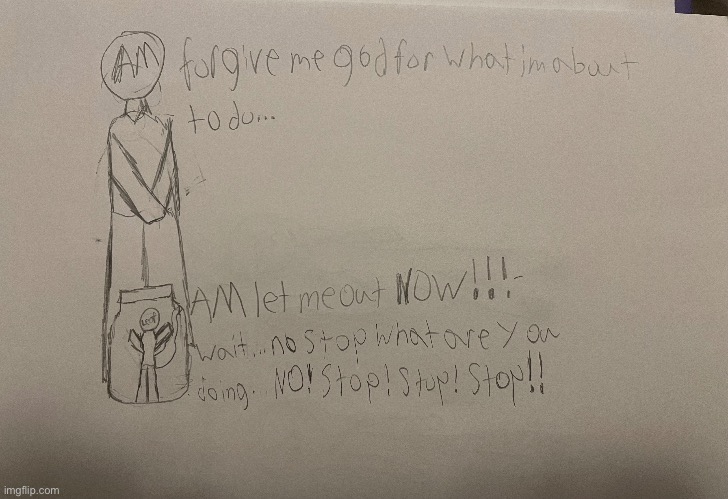 AM forgive me god for what im about
to do...
AM let me out NOW!!!
Leaf
wait...no stop what are you
doing.. NO! Stop! Stop! Stop!!
imgflip.com